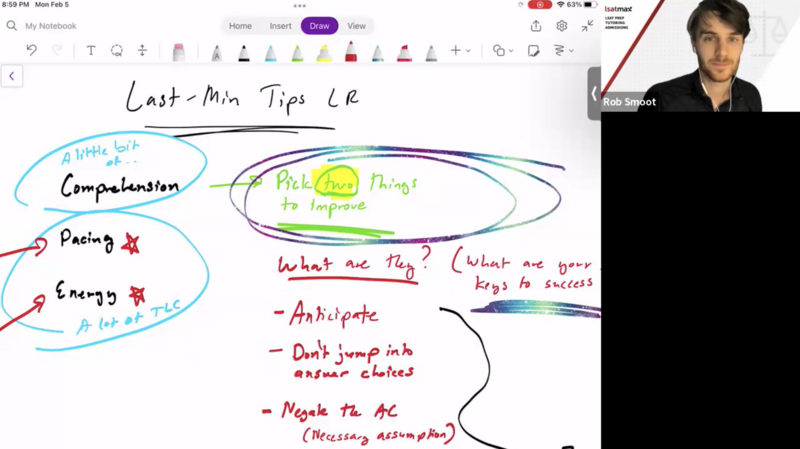 8:59 PM Mon Feb 5
63%
My Notebook
Home Insert Draw View
lsatmax
LSAT PREP
TUTORING
ADMISSIONS
Rob Smoot
Last-Min Tips LR
A little bit
of...
Comprehension
Pick two things
to improve
Pacing
Energy
A lot of TLC
What are they? (What are your
keys to success
- Anticipate
- Don't jump into
answer choices
- Negate the AC
(Necessary assumption)